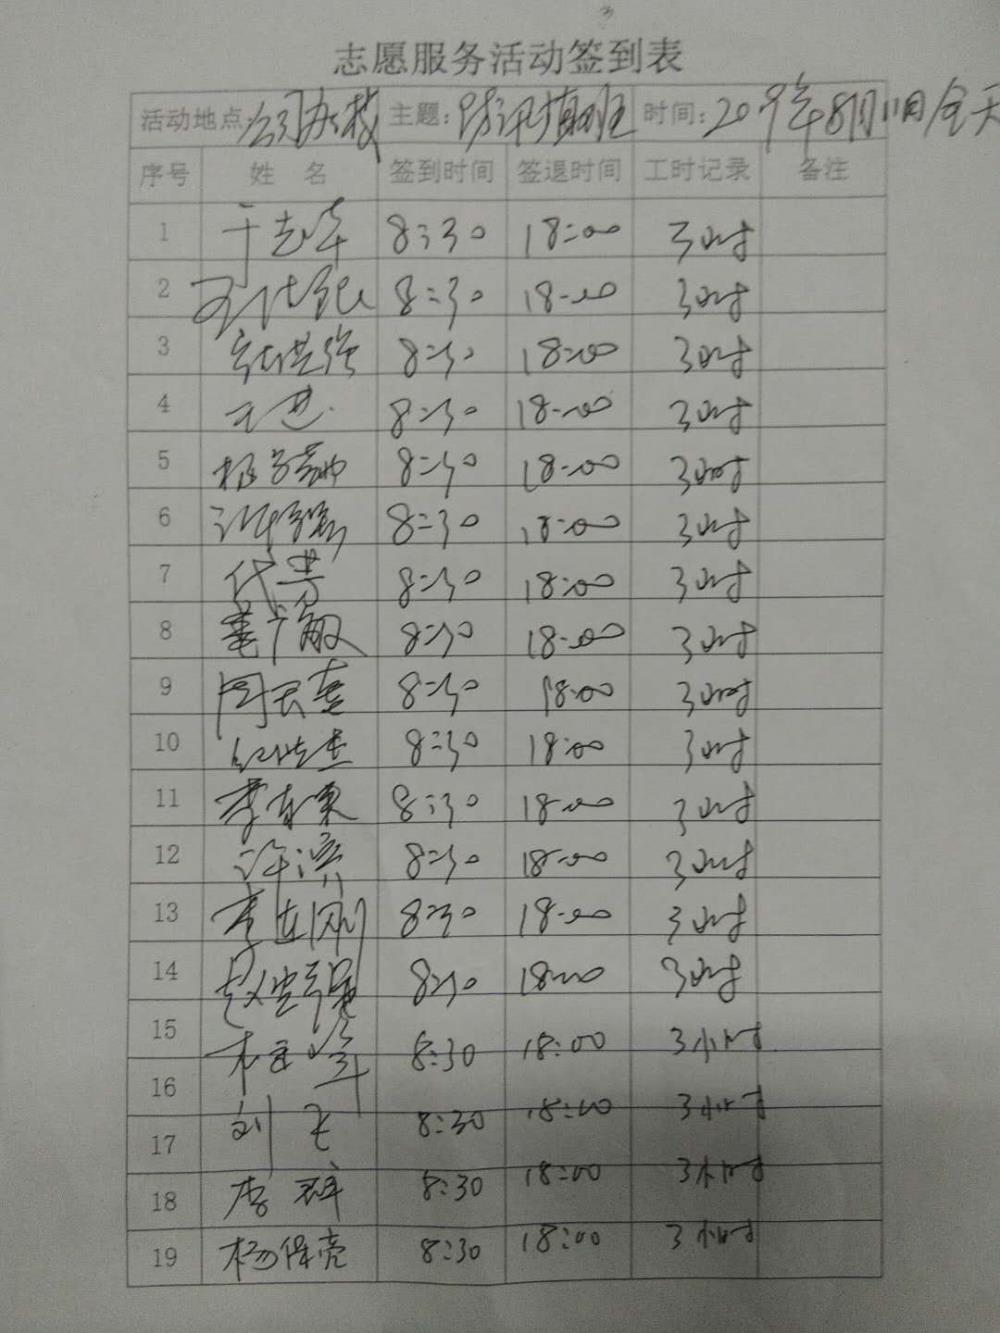 志愿服务活动签到表
活动地点: 主题: 防汛值班 时间: 2019年8月11日全天
序号 姓名 签到时间 签退时间 工时记录 备注
1 于志华 8:30 18:00 3小时
2 8:30 18:00 3小时
3 8:30 18:00 3小时
4 王进 8:30 18:00 3小时
5 8:30 18:00 3小时
6 8:30 18:00 3小时
7 代芳 8:30 18:00 3小时
8 8:30 18:00 3小时
9 8:30 18:00 3小时
10 8:30 18:00 3小时
11 8:30 18:00 3小时
12 许滨 8:30 18:00 3小时
13 李志刚 8:30 18:00 3小时
14 8:30 18:00 3小时
15 8:30 18:00 3小时
16
17 刘飞 8:30 18:00 3小时
18 李群 8:30 18:00 3小时
19 杨保亮 8:30 18:00 3小时